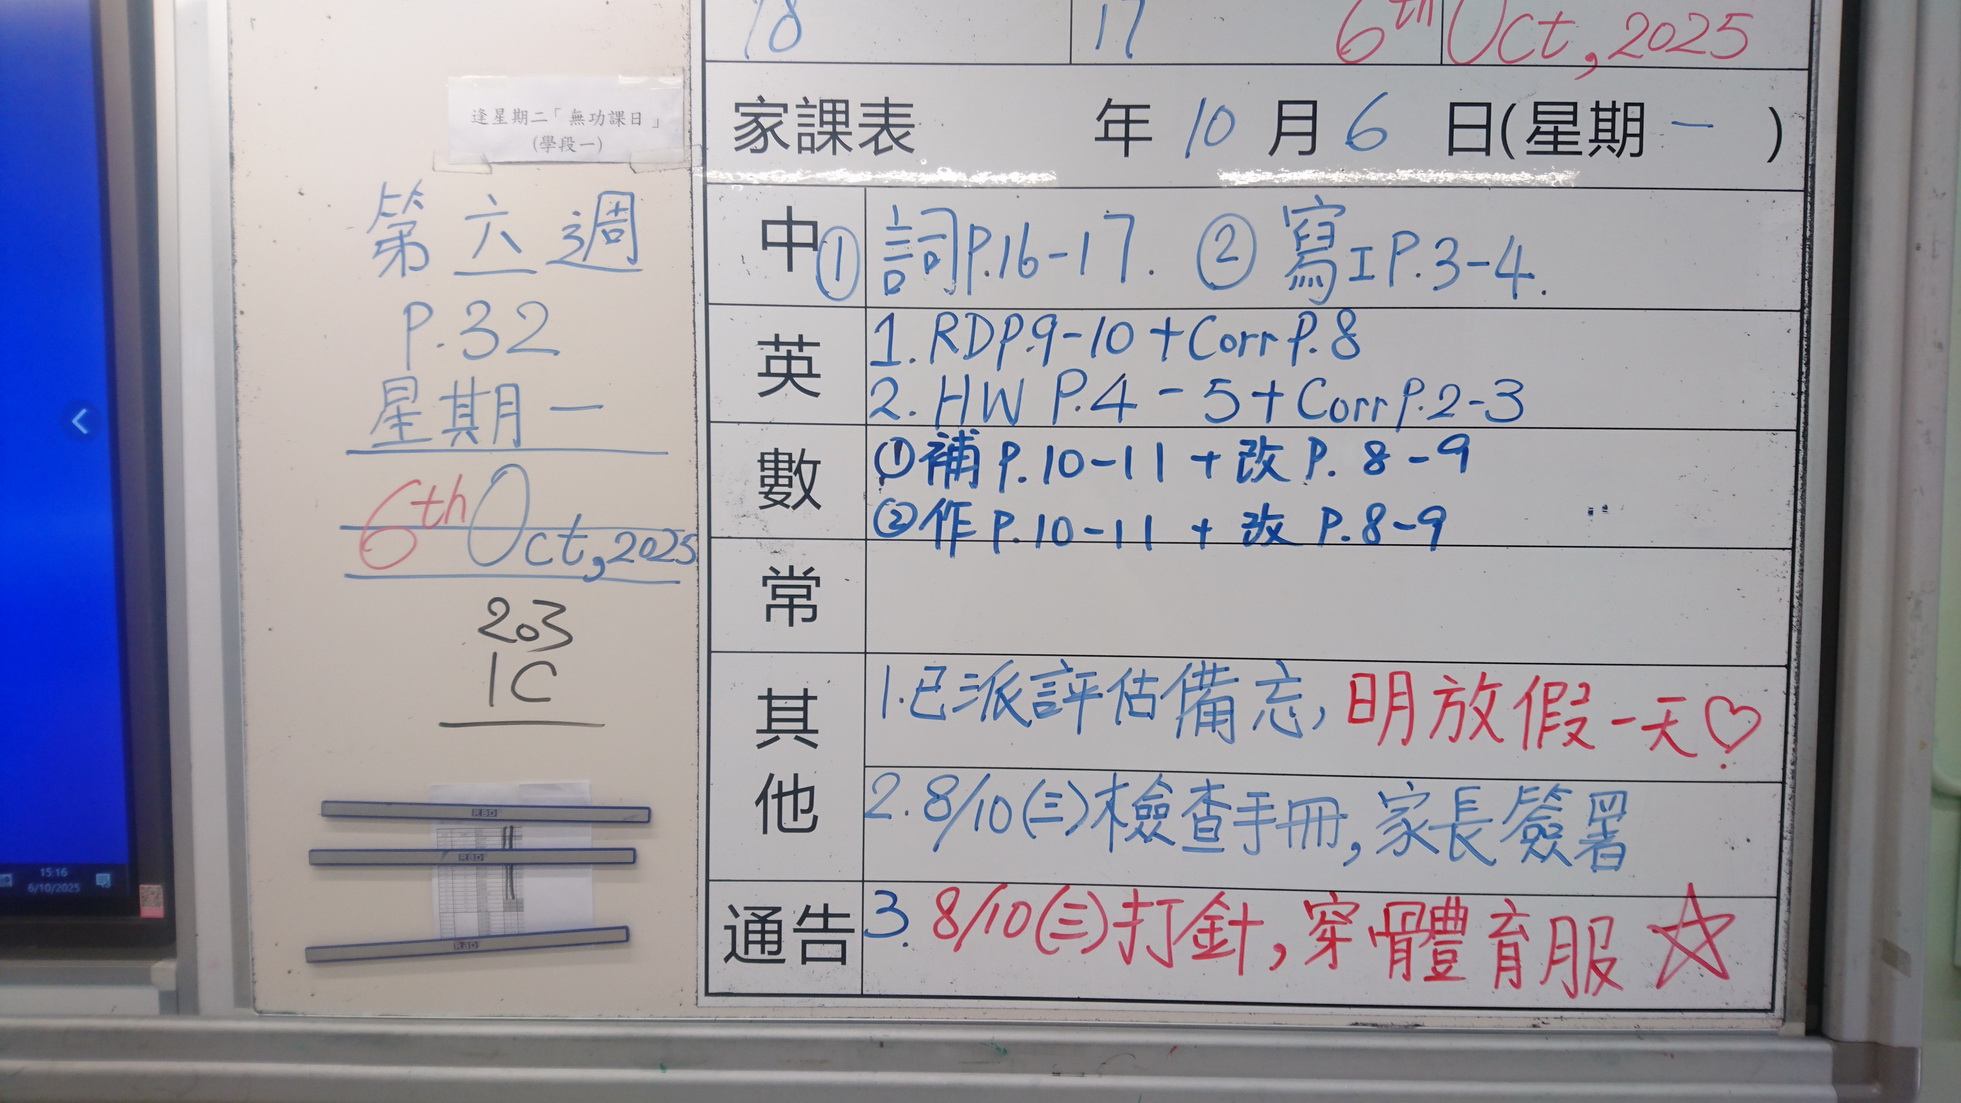 18 17 6th Oct, 2025
逢星期二「無功課日」
(學段一)
家課表 年 10 月 6 日(星期 一 )
第 六 週
P.32
星期一
6th Oct, 2025
203
1C
中 ① 詞P.16-17. ② 寫I P.3-4.
英 1. RD P.9-10 + Corr P.8
2. HW P.4-5 + Corr P.2-3
數 ① 補 P.10-11 + 改 P.8-9
② 作 P.10-11 + 改 P.8-9
常
其他 1. 已派評估備忘, 明放假一天♡
2. 8/10(三)檢查手冊, 家長簽署
通告 3. 8/10(三)打針, 穿體育服 ☆
15:16
6/10/2025